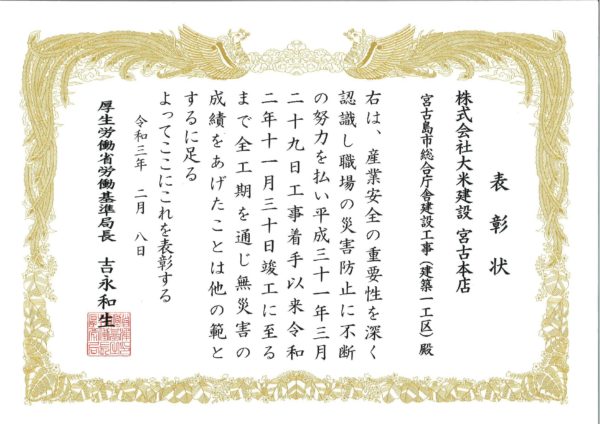 表彰状
株式会社大米建設 宮古本店
宮古島市総合庁舎建設工事(建築一工区)殿
右は、産業安全の重要性を深く
認識し職場の災害防止に不断
の努力を払い平成三十一年三月
二十九日工事着手以来令和
二年十一月三十日竣工に至る
まで全工期を通じ無災害の
成績をあげたことは他の範と
するに足る
よってここにこれを表彰する
令和三年 二月 八日
厚生労働省労働基準局長 吉永和生